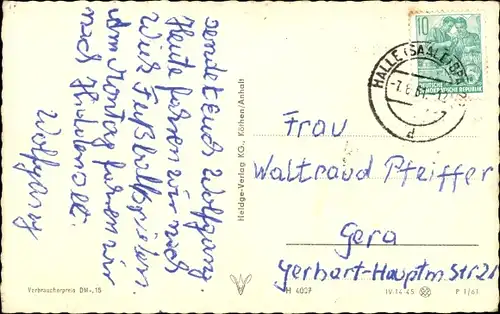 sendet Euch Wolfgang.
Heute fahren wir nach
Fußballspielen.
Am Montag fahren wir
nach
Wolfgang
Heldge-Verlag KG., Köthen/Anhalt
10
DEUTSCHE
DEMOKRATISCHE REPUBLIK
HALLE (SAALE)
d
Frau
Waltraud Pfeiffer
Gera
Gerhart-Hauptm Str 21
Verbraucherpreis DM -,15
H 4027
IV-14-45
P 1/61